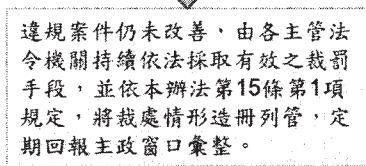 違規案件仍未改善，由各主管法
令機關持續依法採取有效之裁罰
手段，並依本辦法第15條第1項
規定，將裁處情形造冊列管，定
期回報主政窗口彙整。